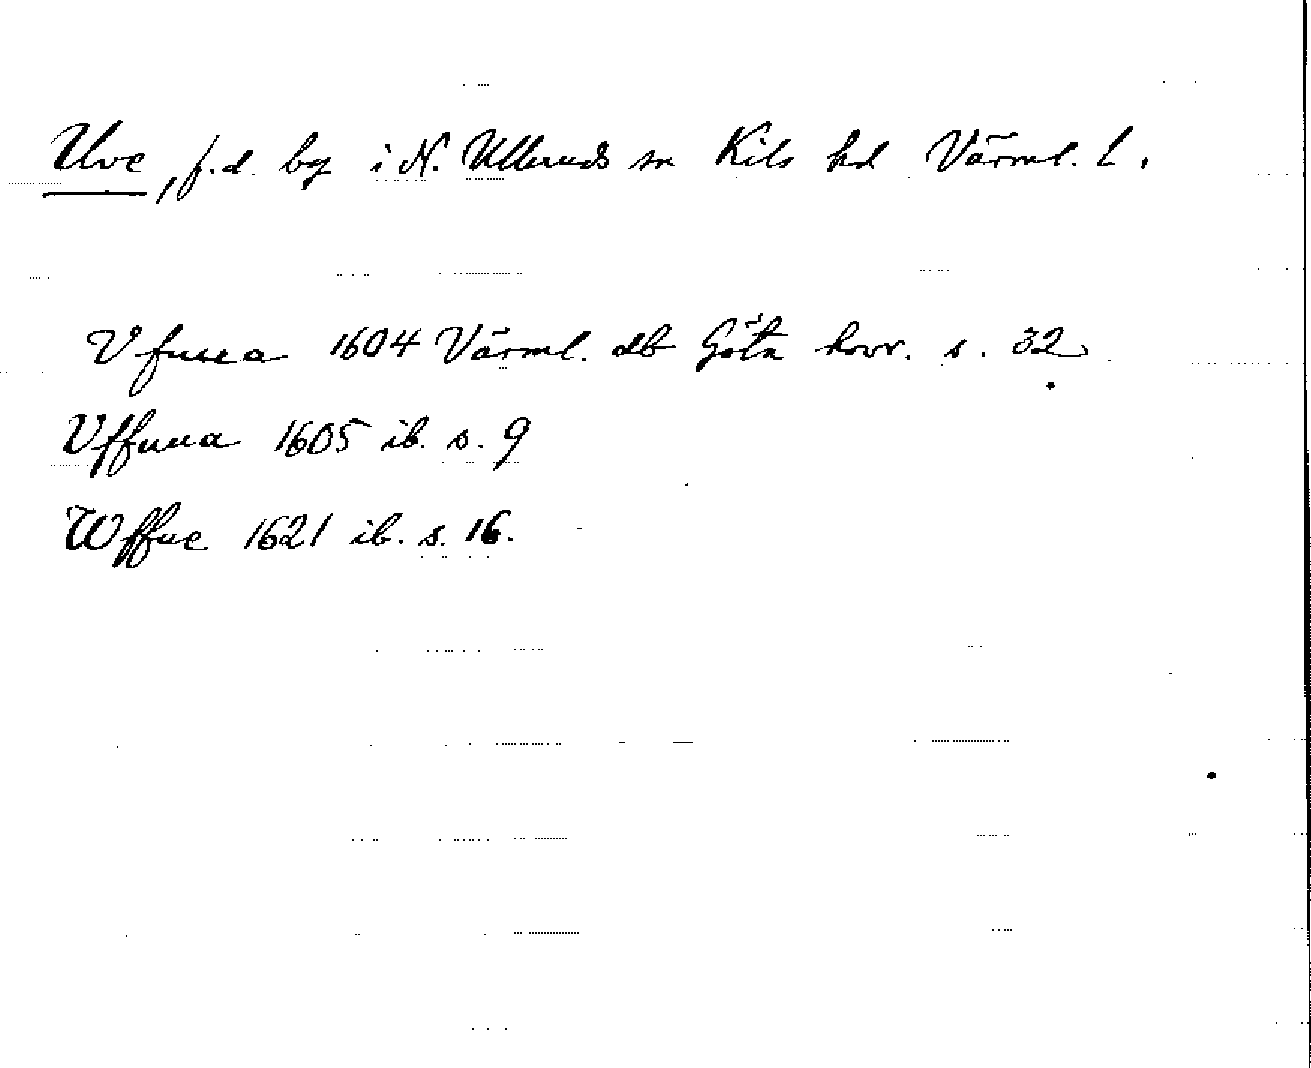 Uve, f.d. by i N. Ulleruds sn Kils hd Värml. l.
Vfuua 1604 Värml. db Göta hovr. s. 32
Vffuua 1605 ib. s. 9
Wffue 1621 ib. s. 16.